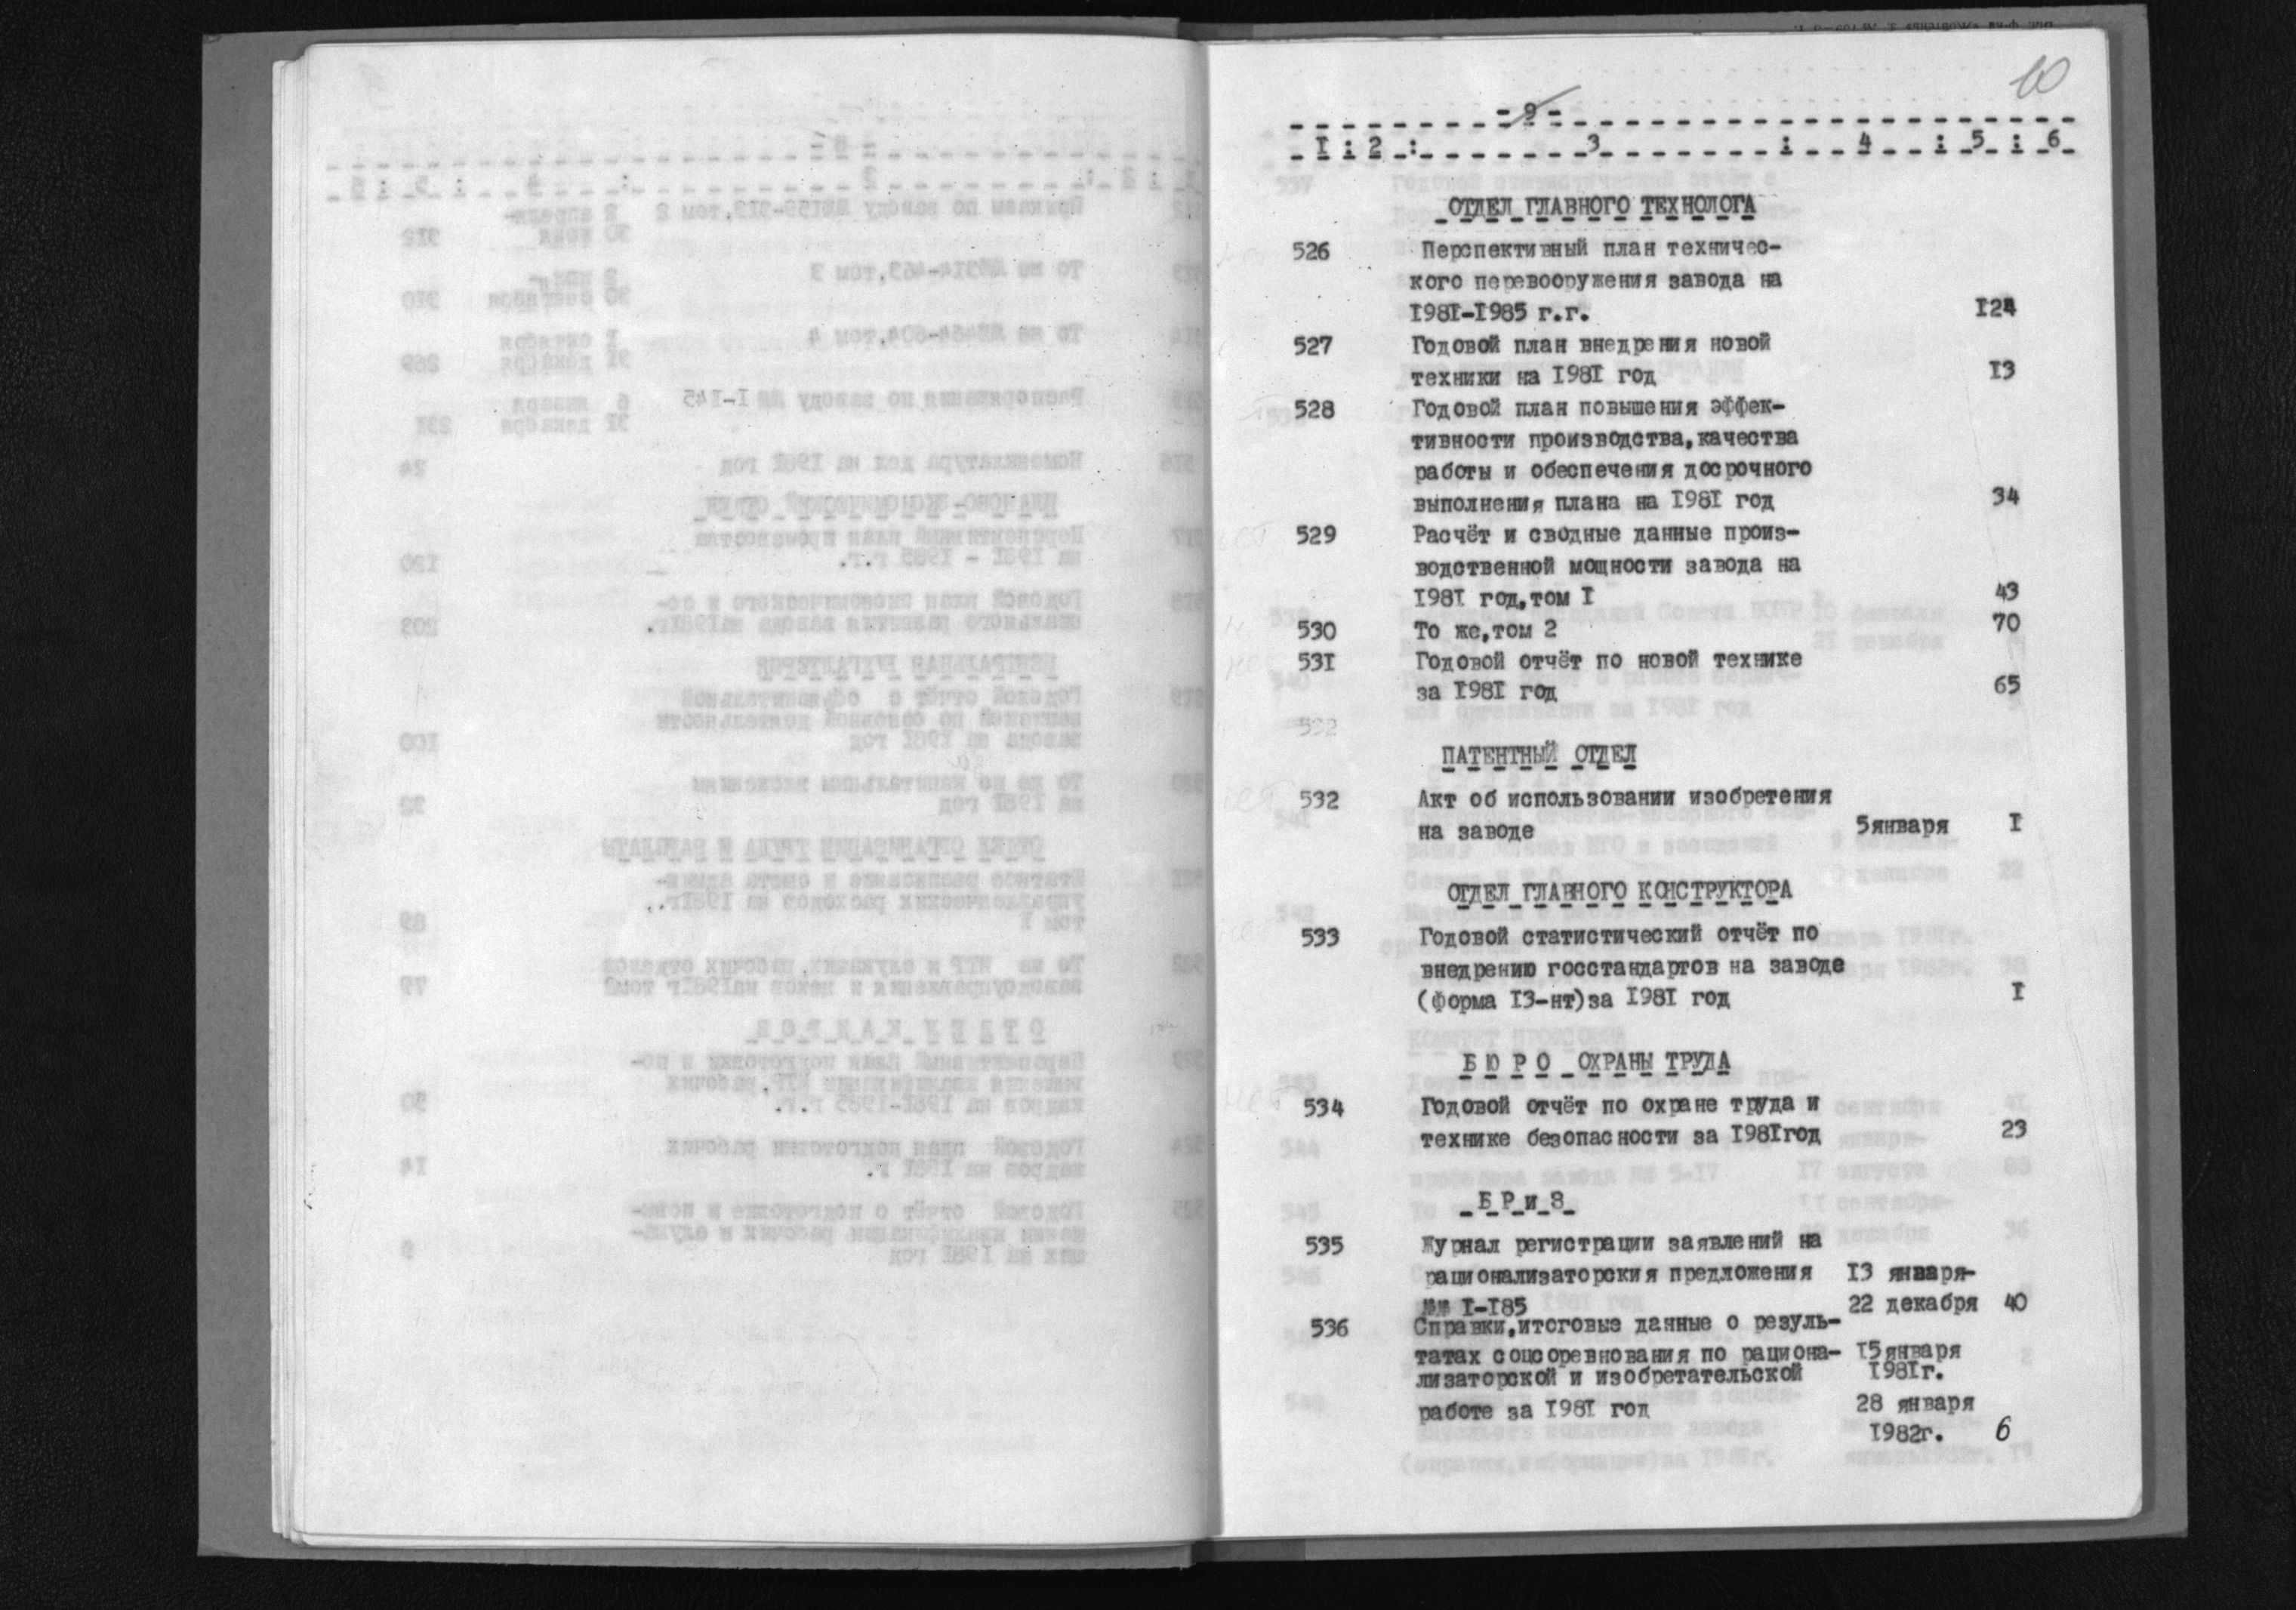 10
- 9 -
1 : 2 : 3 : 4 : 5 : 6
ОТДЕЛ ГЛАВНОГО ТЕХНОЛОГА
526 Перспективный план техничес-
кого перевооружения завода на
1981-1985 г.г. 124
527 Годовой план внедрения новой
техники на 1981 год 13
528 Годовой план повышения эффек-
тивности производства,качества
работы и обеспечения досрочного
выполнения плана на 1981 год 34
529 Расчёт и сводные данные произ-
водственной мощности завода на
1981 год,том I 43
530 То же,том 2 70
531 Годовой отчёт по новой технике
за 1981 год 65
532
ПАТЕНТНЫЙ ОТДЕЛ
532 Акт об использовании изобретения
на заводе 5января I
ОТДЕЛ ГЛАВНОГО КОНСТРУКТОРА
533 Годовой статистический отчёт по
внедрению госстандартов на заводе
(форма 13-нт)за 1981 год I
Б Ю Р О ОХРАНЫ ТРУДА
534 Годовой отчёт по охране труда и
технике безопасности за 1981год 23
Б Р и З
535 Журнал регистрации заявлений на
рационализаторския предложения 13 января-
№№ I-185 22 декабря 40
536 Справки,итоговые данные о резуль-
татах соцсоревнования по рациона- 15января
лизаторской и изобретательской 1981г.
работе за 1981 год 28 января
1982г. 6